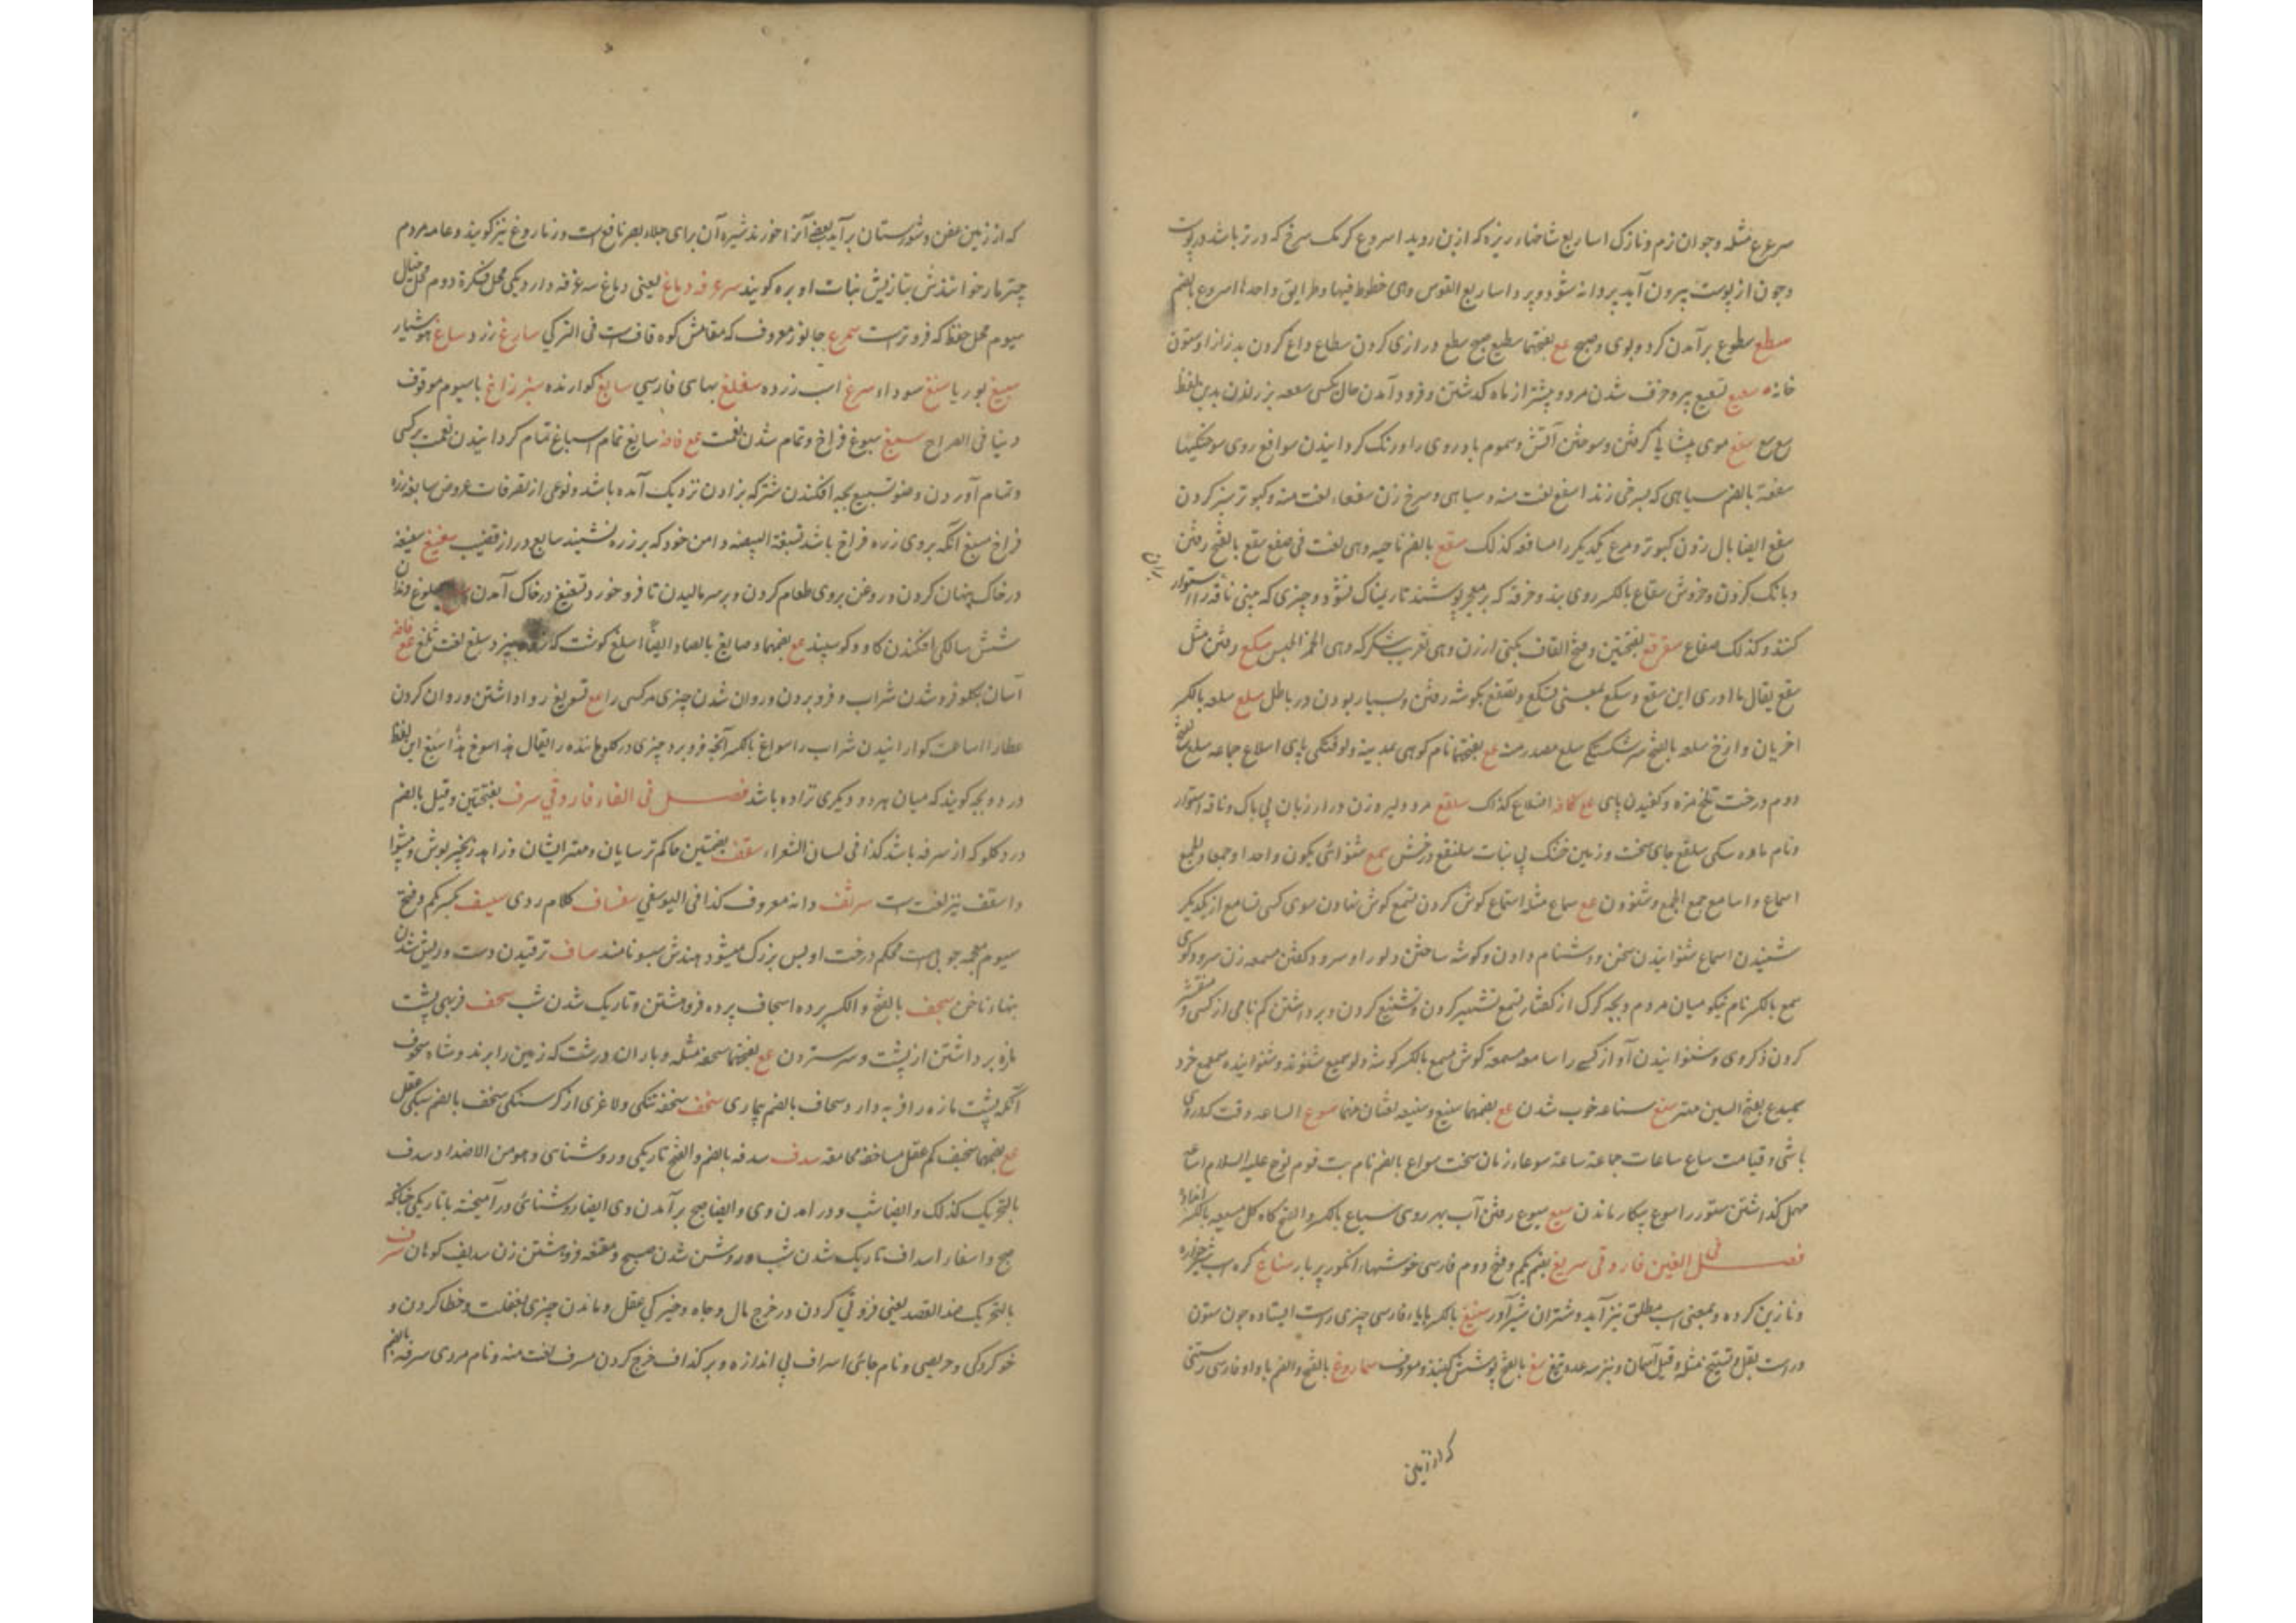 سرعرع مثله و جوان نرم و نازک اساریع شاخهاء ریزه که از بن روید اسروع کرمک سرخ که در تر باشد در پوست
و چون از پوست بیرون آید پروانه شود و پرد اساریع القوس و هی خطوط فیها و طرایق واحدها اسروع بالضم
سطع سطوع برآمدن کرد و بوی و صبح مع بفتحتها سطیع صبح سطع درازی کردن سطاع داغ کردن بدرازا و ستون
خانه سعسع تسعسع پیر و خرف شدن مرد و بیشتر از ماه گذشتن و فرود آمدن حال کسی سعسعه بز راندن بدین لفظ
سع سع سفع موی پیشانی گرفتن و سوختن آتش و سموم باد روی را و رنگ گردانیدن سوافع روی سوختگیها
سفعة بالضم سیاهی که بسرخی زند اسفع لغت منه و سیاهی و سرخ زن سفعاء لغت منه و کبوتر سبز کردن
سفع ایضا بال زدن کبوتر و مرغ یکدیگر را مسافعه کذلک سقع بالضم ناحیه و هی لغت فی صقع سقع بالفتح رفتن
و بانک کردن و خروش سقاع بالکسر روی بند و خرقه که بر معجر پوشند تا ریمناک نشود و چیزی که بینی ناقه را استوار
کنند و کذلک صقاع سقرقع بضمتین و فتح القاف بکنی ارزن و هی تعریب شکرکه و هی الخمر الحبس سکع رفتن مثل
سقع یقال ما ادری این سقع و سکع بمعنی تسکع و تصقع بگوشه رفتن و بسیار بودن در باطل سلع سلعه بالکسر
اخریان و آژخ سلعه بالفتح سرشکستگی سلع مصدر منه مع بفتحتها نام کوهی بمدینه و لوفتکی پای اسلاع جماعه سلع بفتح
دوم درخت تلخ مزه و کفیدن پای مع کافه اسلاع کذلک سلفع مرد دلیر و زن دراز زبان بی باک و ناقه استوار
و نام ماده سکی سلقع جای سخت و زمین خشک بی نبات سلنقع درخش سمع شنوائی یکون واحدا و جمعا و للجمع
اسماع و اسامع جمع الجمع و شنودن مع سماع مثله استماع گوش کردن تسمع گوش نهادن سوی کسی تسامع از یکدیگر
شنیدن اسماع شنوانیدن سخن و دشنام دادن و گوشه ساختن دلو را و سرود گفتن مسمعه زن سرود گوی
سمع بالکسر نام نیکو میان مردم و بچه گرگ از کفتار تسمیع تشهیر کردن و تشنیع کردن و برداشتن گم نامی از کسی و منتشر
کردن ذکر وی و شنوانیدن آواز کسی را سامعه مسمعة گوش مسمع بالکسر گوشه دلو سمیع شنونده و شنواینده سمعمع خرد
سمیدع بفتح السین مهتر سنع سناعه خوب شدن مع بضمها سنیع و سنیعه لغتان منها سوع الساعه وقت که در وی
باشی و قیامت ساع ساعات جماعة ساعة سوعاء زمان سخت سواع بالضم نام بت قوم نوح علیه السلام اساعه
مهمل گذاشتن ستور را سوع بیکار ماندن سیع سیوع رفتن آب بهر روی سیاع بالکسر و الفتح کاه گل مسیعه بالکسر انداوه
فصل فی الغین فاروقی سریغ بضم یکم و فتح دوم فارسی خوشهاء انکور پر بار سناغ کره اسب شیر خواره
و نازنین کرده و بمعنی اسب مطلق نیز آید و شتران شیرآور ستیغ بالکسر با یاء فارسی چیزی راست ایستاده چون ستون
و راست بقلم و تشیخ مثله و قیل آسمان و نیز سه عدد تیغ سغ بالفتح پوشش گنبذ معروف سماروغ بالفتح و الضم با واو فارسی رستنی
که از زمین
که از زمین عفن و شورستان برآید بعضی آنرا خورند شیره آن برای جلاء بصر نافع است و زماروغ نیز گویند و عامه مردم
چتر مار خوانندش بتازیش نبات اوبره گویند سرغرفه دماغ یعنی دماغ سه غرفه دارد یکی محل فکرة دوم محل خیال
سیوم محل حفظ که فروتر است سمرغ جانور معروف که مقامش کوه قاف است فی الترکی ساریغ زرد ساغ هوشیار
سیغ بوریا سنغ سودا سرغ اسب زرده سغلغ بهاء فارسی سایغ گوارنده سبزراغ با سیوم موقوف
دنیا فی الصراح سبغ سبوغ فراخ و تمام شدن نعمت مع فاضه سابغ تمام اسباغ تمام گردانیدن نعمت بر کسی
و تمام آوردن وضو تسبیغ بچه افکندن شتر که بزادن نزدیک آمده باشد و نوعی از تصرفات عروض سابغه زره
فراخ مسبغ آنکه بر وی زره فراخ باشد تسبغة البیضه دامن خود که بر زره نشیند سابع دراز قضیب سغسغ سغسغه
در خاک پنهان کردن و روغن بر وی طعام کردن و بر سر مالیدن تا فرو خورد تسغسغ در خاک آمدن سلوغ دندان
شش سالگی افکندن گاو و گوسپند مع بضمها و صایغ بالصاد ایضا اسلغ گوشت که نپزد سلغ لغت ثلغ مع فاضه
آسان بگلو فرو شدن شراب و فرو بردن و روان شدن چیزی مر کسی را مع تسویغ روا داشتن و روان کردن
عطا را اساغت گوارانیدن شراب را سواغ بالکسر آنچه فرو برد چیزی در گلو مانده را یقال هذا سوغ هذا و سیغ این لفظ
در دو بچه گویند که میان هر دو دیگری نزاده باشد فصل فی الفاء فاروقی سرف بفتحتین و قیل بالضم
درد گلو که از سرفه باشد کذا فی لسان الشعراء سقف بضمتین حاکم ترسایان و مهتر ایشان و زاهد زنجیر پوش و پیشوا
و اسقف نیز لغت است سرنف دانه معروف کذا فی الیوسفی سفساف کلام ردی سیسف بکسر یکم و فتح
سیوم معجمه چوبی است محکم درخت او بس بزرگ میشود هندش سیسو نامند ساف ترقیدن دست و ریش شدن
بنهاء ناخن سجف بالفتح و الکسر پرده اسجاف پرده فروهشتن و تاریک شدن شب سحف فربهی پشت
مازه برداشتن از پشت و سر ستردن مع بفتحتها سحفه مثله و باران درشت که زمین را برند و شاه سحوف
آنکه پشت مازه را فربه دارد سحاف بالضم بیماری سخف سخفه تنکی و لاغری از گرسنگی سخف بالضم سبکی عقل
مع بضمها سخیف کم عقل مساخفه محامقه سدف سدفه بالضم و الفتح تاریکی و روشنائی و هو من الاضداد سدف
بالتحریک کذلک و ایضا شب و در آمدن وی و ایضا صبح و برآمدن وی ایضا روشنائی در آمیخته با تاریکی چنانکه
صبح و اسفار اسداف تاریک شدن شب و روشن شدن صبح و مقنعه فروهشتن زن سدیف کوهان سرف
بالتحریک ضد القصد یعنی فزونی کردن در خرج مال و جاه و خیرگی عقل و ماندن چیزی بغفلت و خطا کردن و
خو کردگی و حریصی و نام جائی اسراف بی اندازه و بر گزاف خرج کردن مسرف لغت منه و نام مردی سرفه بالضم